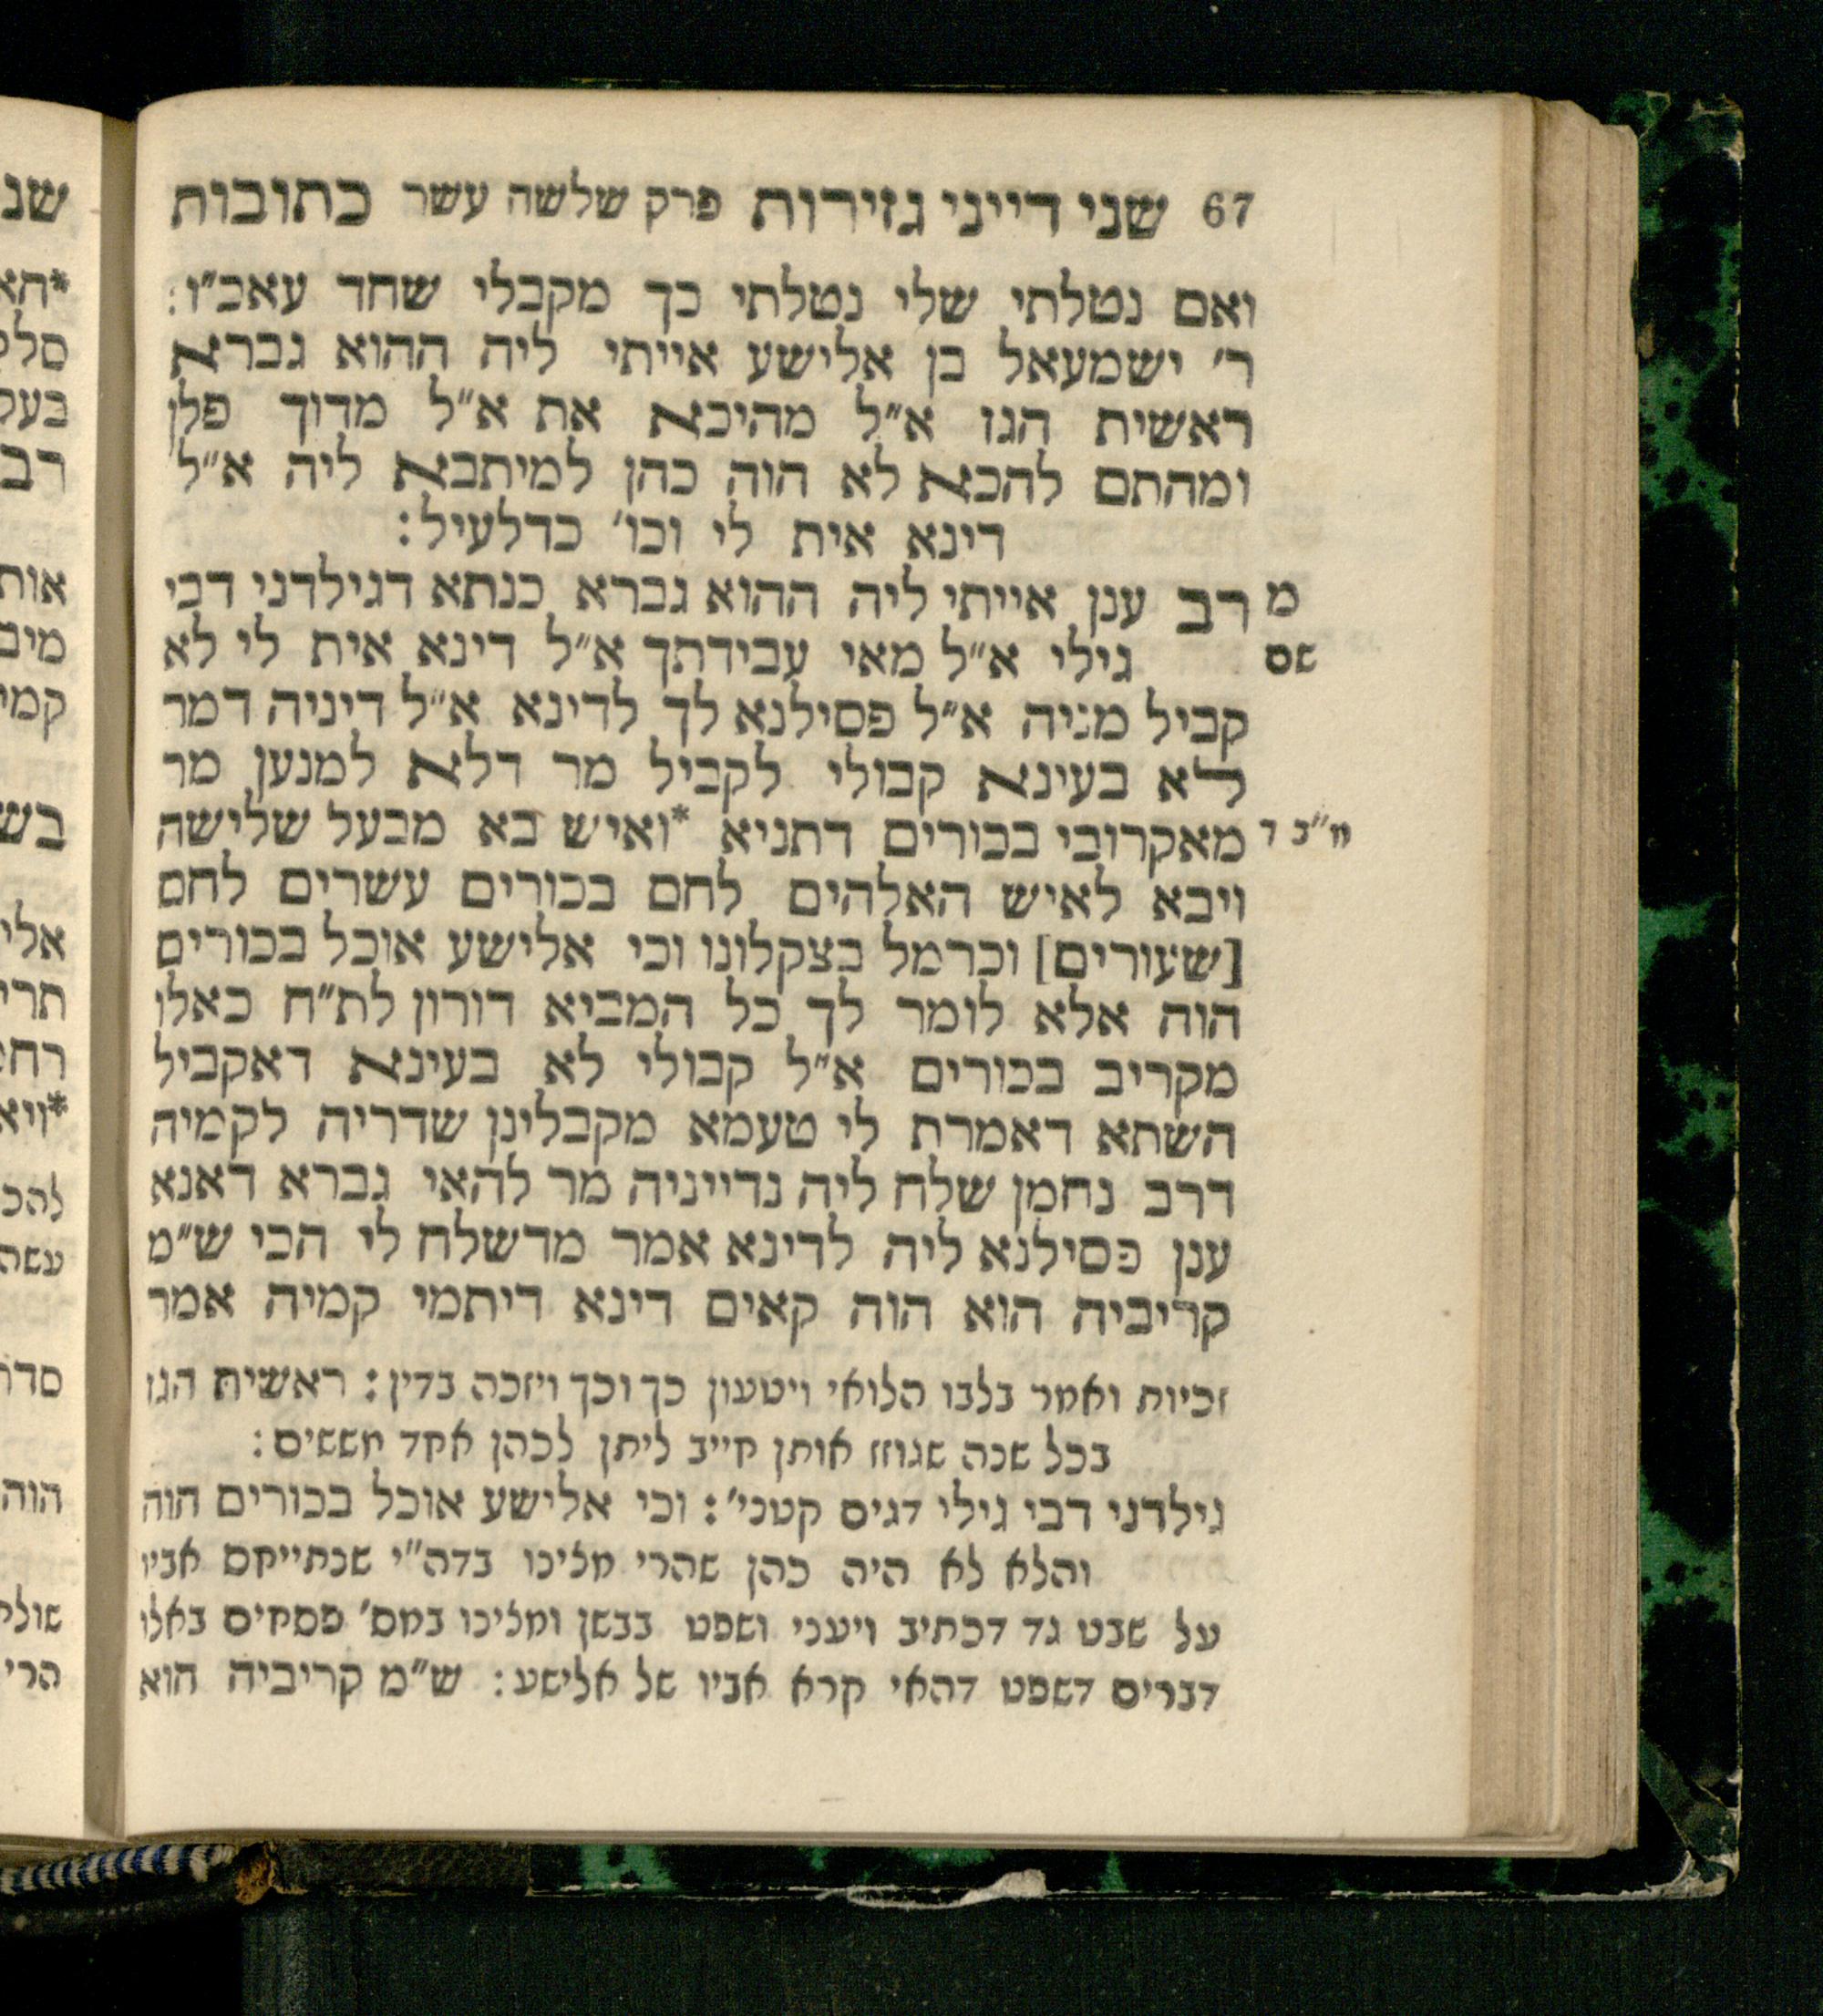 67 שני דייני גזירות פרק שלשה עשר כתובות
ואם נטלתי שלי נטלתי כך מקבלי שחד עאכ״ו:
ר׳ ישמעאל בן אלישע אייתי ליה ההוא גברא
ראשית הגז א״ל מהיכא את א״ל מדוך פלן
ומהתם להכא לא הוה כהן למיתבא ליה א״ל
דינא אית לי וכו׳ כדלעיל:
מ רב ענן אייתי ליה ההוא גברא כנתא דגילדני דבי
שם גילי א״ל מאי עבידתך א״ל דינא אית לי לא
קביל מניה א״ל פסילנא לך לדינא א״ל דיניה דמר
לא בעינא קבולי לקביל מר דלא למנען מר
מ״ב ד מאקרובי בכורים דתניא *ואיש בא מבעל שלישה
ויבא לאיש האלהים לחם בכורים עשרים לחם
[שעורים] וכרמל בצקלונו וכי אלישע אוכל בכורים
הוה אלא לומר לך כל המביא דורון לת״ח כאלו
מקריב בכורים א״ל קבולי לא בעינא דאקביל
השתא דאמרת לי טעמא מקבלינן שדריה לקמיה
דרב נחמן שלח ליה נדייניה מר להאי גברא דאנא
ענן פסילנא ליה לדינא אמר מדשלח לי הכי ש״מ
קריביה הוא הוה קאים דינא דיתמי קמיה אמר
זכיות ואמר בלבו הלואי ויטעון כך וכך ויזכה בדין: ראשית הגז
בכל שנה שגוזז אותן חייב ליתן לכהן אחד מששים:
גילדני דבי גילי דגים קטני׳: וכי אלישע אוכל בכורים הוה
והלא לא היה כהן שהרי מלינו בדה״י שנתייחס אביו
על שבט גד דכתיב ויעני ושפט בבשן ומלינו במס׳ פסחים באלו
דברים דשפט דהאי קרא אביו של אלישע: ש״מ קריביה הוא